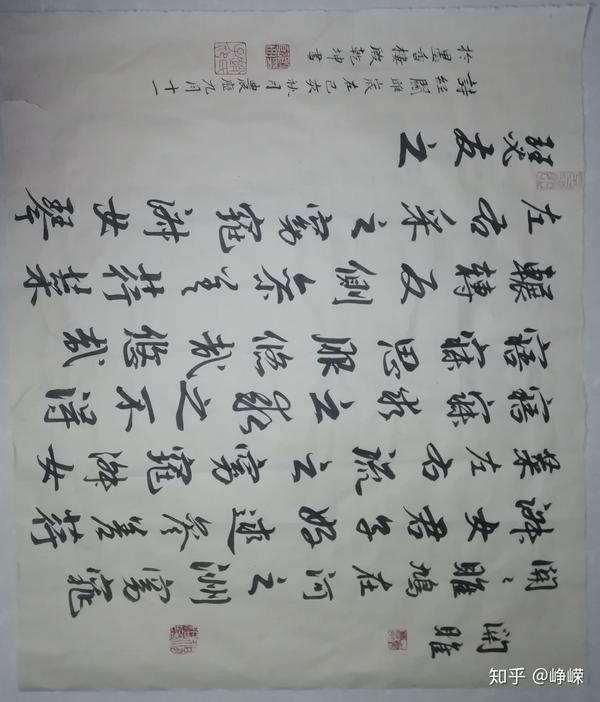 関雎
関〻雎鳩在河之洲窈窕
淑女君子好逑參差荇
菜左右流之窈窕淑女
寤寐求之求之不得
寤寐思服悠哉悠哉
輾轉反側參差荇菜
左右采之窈窕淑女琴
瑟友之
詩經關雎歲在己亥秋月農歷九月十一
於墨香樓殷乾坤書
知乎 @峥嵘